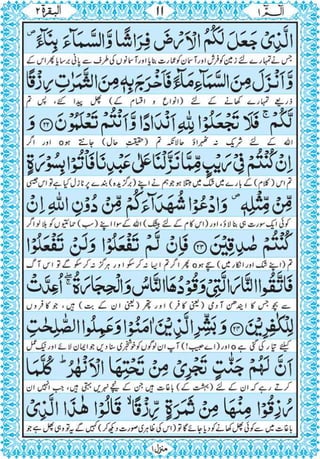 البقرة ٢
11
الٓمّٓ ١
الَّذِىْ جَعَلَ لَكُمُ الْاَرْضَ فِرَاشًا وَّالسَّمَآءَ بِنَآءً ۪
جس نے تمہارے لئے زمین کو فرش اور آسمان کو عمارت بنایا اور آسمانوں کی طرف سے پانی برسایا پھر اس کے
وَّاَنْزَلَ مِنَ السَّمَآءِ مَآءً فَاَخْرَجَ بِهٖ مِنَ الثَّمَرٰتِ رِزْقًا
ذریعے تمہارے کھانے کے لئے (انواع و اقسام کے) پھل پیدا کئے، پس تم
لَّكُمْ ۚ فَلَا تَجْعَلُوْا لِلّٰهِ اَنْدَادًا وَّاَنْتُمْ تَعْلَمُوْنَ ﴿۲۲﴾ وَ
اللہ کے لئے شریک نہ ٹھہراؤ حالانکہ تم (حقیقتِ حال) جانتے ہوo اور اگر
اِنْ كُنْتُمْ فِىْ رَيْبٍ مِّمَّا نَزَّلْنَا عَلٰى عَبْدِنَا فَاْتُوْا بِسُوْرَةٍ
تم اس (کلام) کے بارے میں شک میں مبتلا ہو جو ہم نے اپنے (برگزیدہ) بندے پر نازل کیا ہے تو اس جیسی
مِّنْ مِّثْلِهٖ ۪ وَادْعُوْا شُهَدَآءَكُمْ مِّنْ دُوْنِ اللّٰهِ اِنْ
کوئی ایک سورت ہی بنا لاؤ، اور (اس کام کے لئے بیشک) اللہ کے سوا اپنے (سب) حمائتیوں کو بلا لو اگر
كُنْتُمْ صٰدِقِيْنَ ﴿۲۳﴾ فَاِنْ لَّمْ تَفْعَلُوْا وَلَنْ تَفْعَلُوْا
تم (اپنے شک اور انکار میں) سچے ہوo پھر اگر تم ایسا نہ کر سکو اور ہرگز نہ کر سکو گے تو اس آگ
فَاتَّقُوا النَّارَ الَّتِىْ وَقُوْدُهَا النَّاسُ وَالْحِجَارَةُ ۚۖ اُعِدَّتْ
سے بچو جس کا ایندھن آدمی (یعنی کافر) اور پتھر (یعنی ان کے بت) ہیں، جو کافروں
لِلْكٰفِرِيْنَ ﴿۲۴﴾ وَبَشِّرِ الَّذِيْنَ اٰمَنُوْا وَعَمِلُوا الصّٰلِحٰتِ
کیلئے تیار کی گئی ہےo اور (اے حبیب!) آپ ان لوگوں کو خوشخبری سنا دیں جو ایمان لائے اور نیک عمل
اَنَّ لَهُمْ جَنّٰتٍ تَجْرِىْ مِنْ تَحْتِهَا الْاَنْهٰرُ ؕ كُلَّمَا
کرتے رہے کہ ان کے لئے (بہشت کے) باغات ہیں جن کے نیچے نہریں بہتی ہیں، جب انہیں ان
رُزِقُوْا مِنْهَا مِنْ ثَمَرَةٍ رِّزْقًا ۙ قَالُوْا هٰذَا الَّذِىْ
باغات میں سے کوئی پھل کھانے کو دیا جائے گا تو (اس کی ظاہری صورت دیکھ کر) کہیں گے یہ تو وہی پھل ہے جو
منزل ١